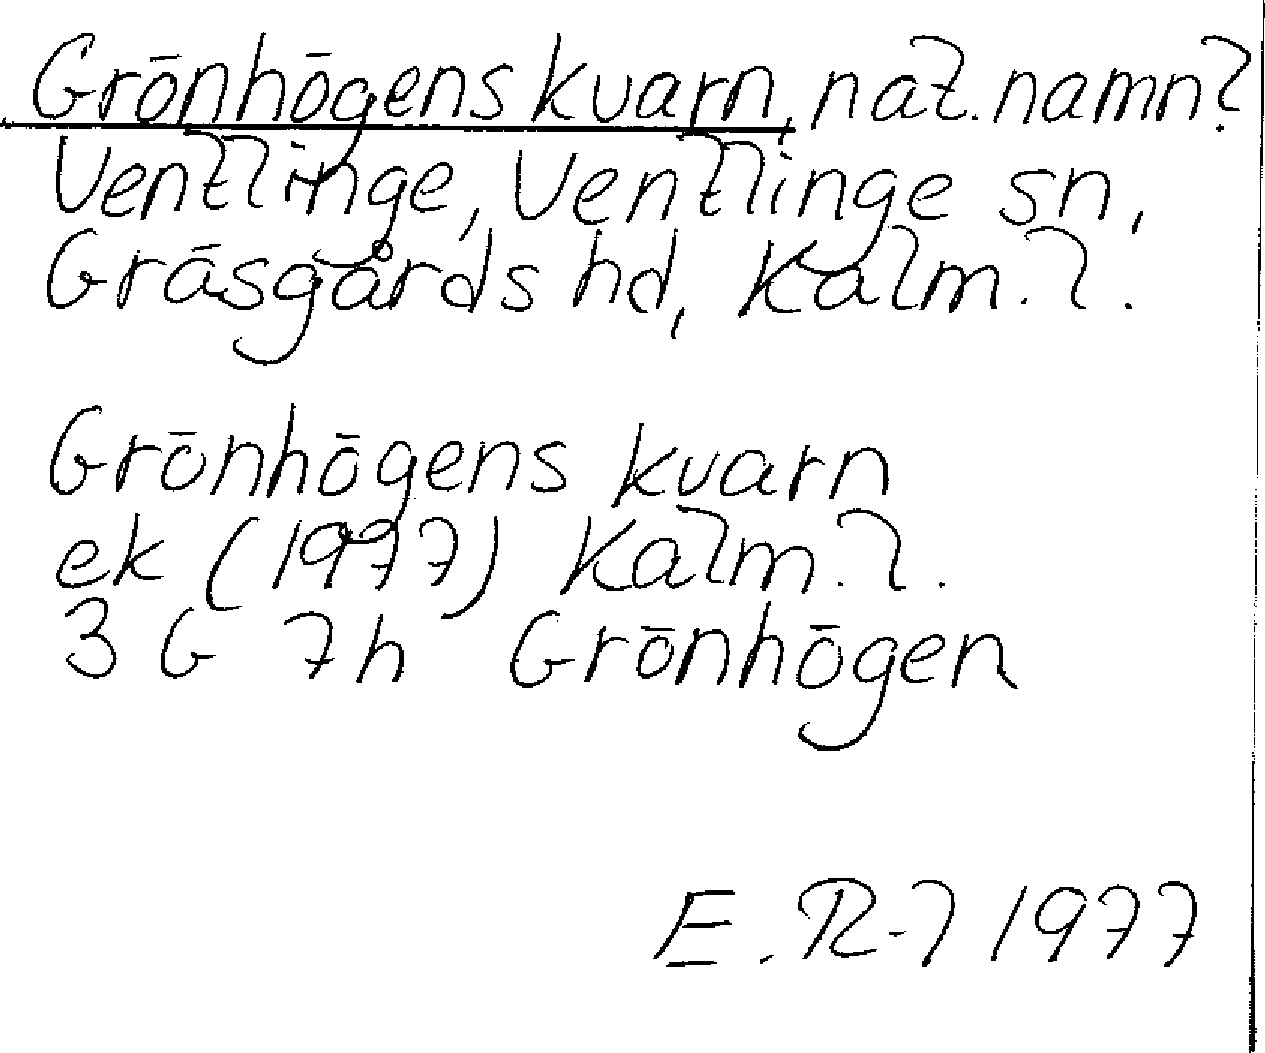 Grönhögens kvarn, nat. namn?
Ventlinge, Ventlinge sn,
Gräsgårds hd, Kalm. l.
Grönhögens kvarn
ek (1977) Kalm. l.
3 G 7h Grönhögen
E. R-l 1977